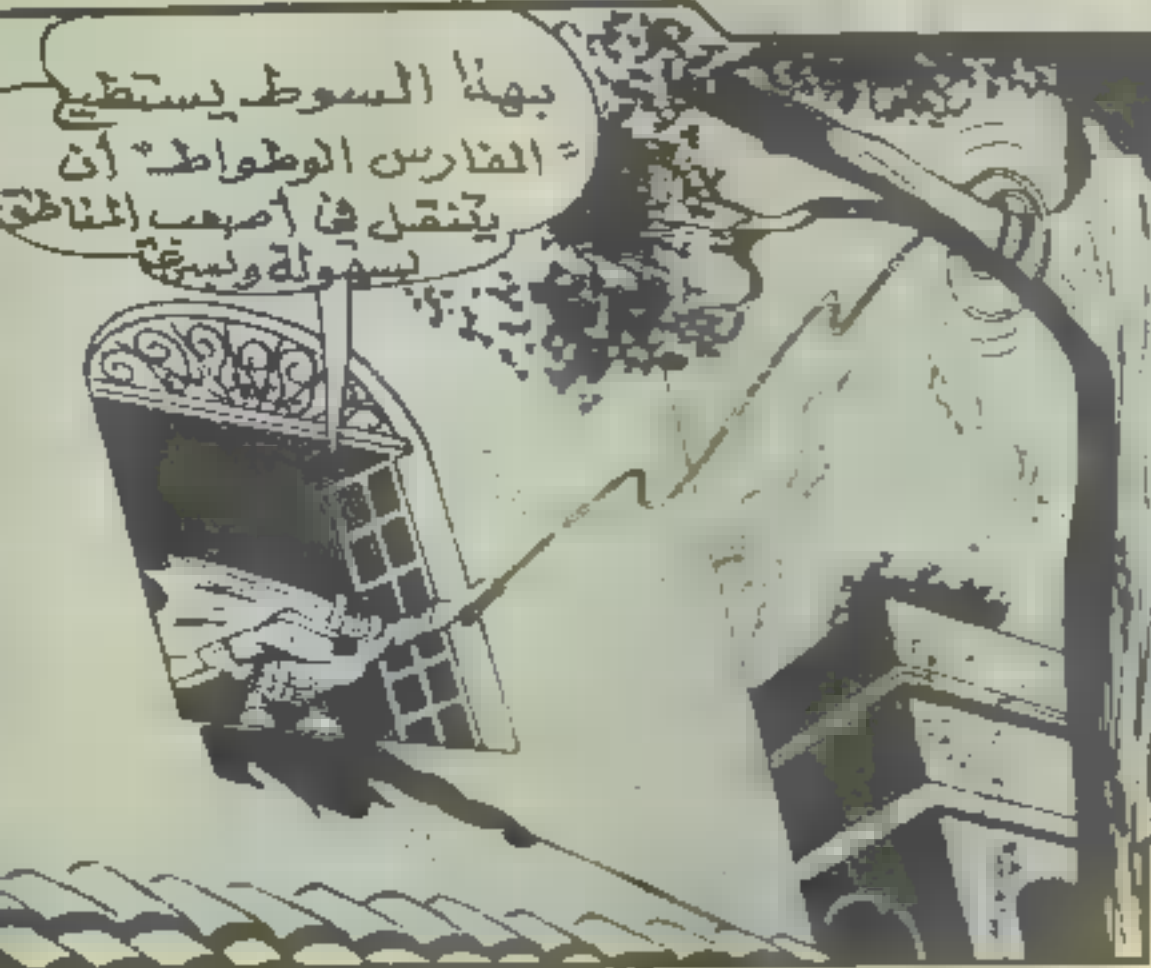 بهذا السوط يستطيع
"الفارس الوطواط" أن
يتنقل في أصعب المناطق
بسهولة وبسرعة